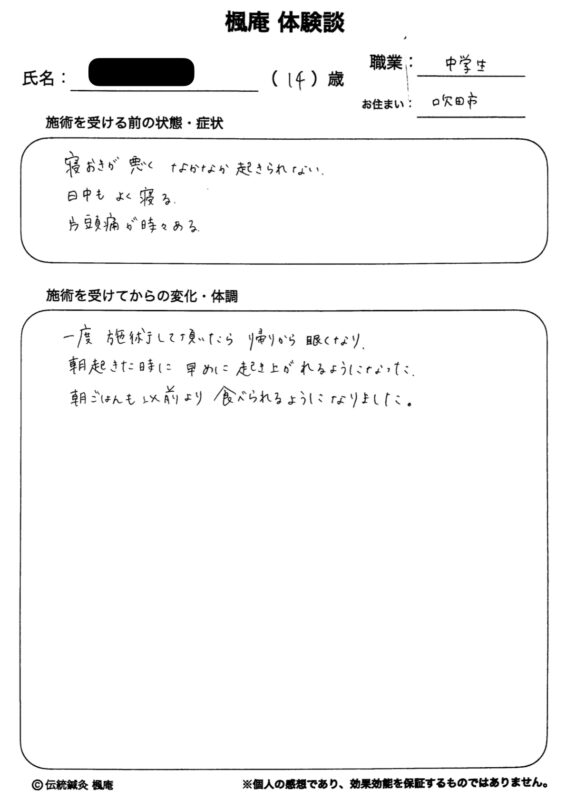 楓庵 体験談
氏名：（14）歳
職業：中学生
お住まい：吹田市
施術を受ける前の状態・症状
寝おきが 悪く なかなか 起きられない.
日中も よく 寝る.
片頭痛が時々ある.
施術を受けてからの変化・体調
一度 施術して頂いたら 帰りから 眠くなり.
朝起きた時に 早めに 起き上がれるようになった.
朝ごはんも 以前より 食べられるようになりました。
©伝統鍼灸 楓庵
※個人の感想であり、効果効能を保証するものではありません。